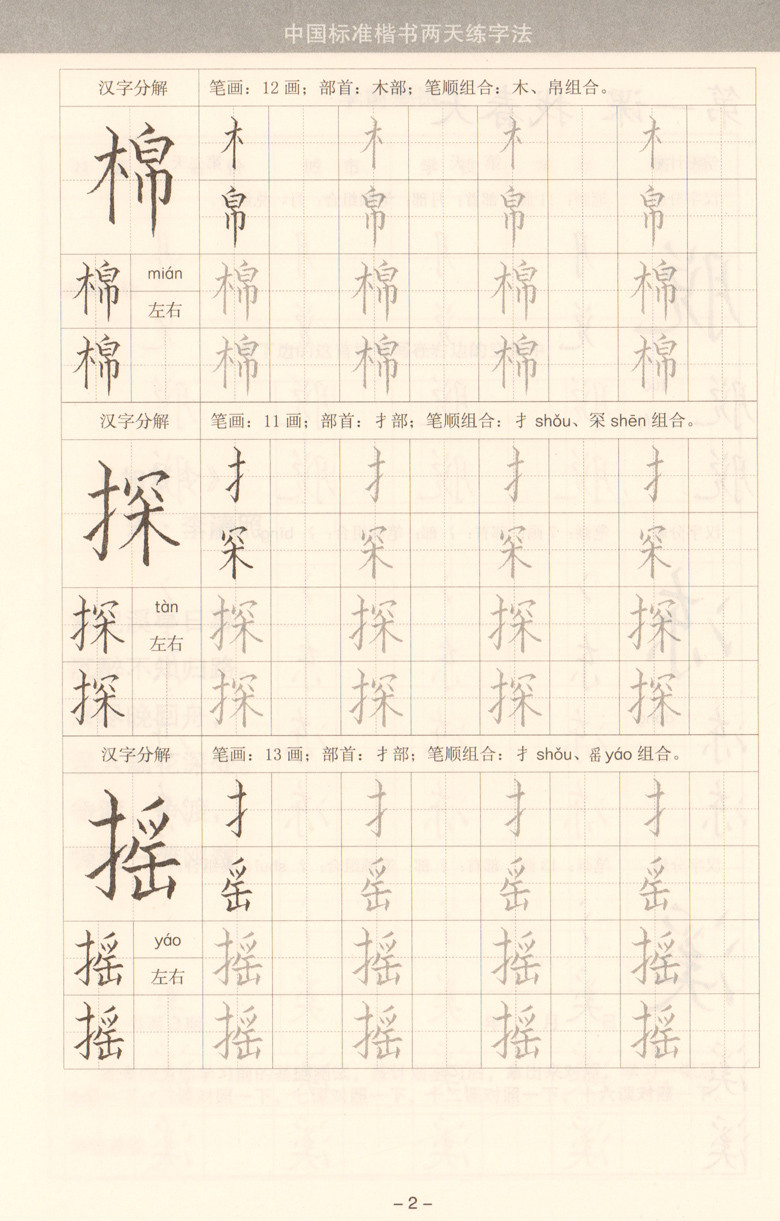 中国标准楷书两天练字法
汉字分解 笔画：12画；部首：木部；笔顺组合：木、帛组合。
棉 木 木 木 木
帛 帛 帛 帛
棉 mián 左右 棉 棉 棉 棉
棉 棉 棉 棉 棉
汉字分解 笔画：11画；部首：扌部；笔顺组合：扌shǒu、罙shēn组合。
探 扌 扌 扌 扌
罙 罙 罙 罙
探 tàn 左右 探 探 探 探
探 探 探 探 探
汉字分解 笔画：13画；部首：扌部；笔顺组合：扌shǒu、䍃yáo组合。
摇 扌 扌 扌 扌
䍃 䍃 䍃 䍃
摇 yáo 左右 摇 摇 摇 摇
摇 摇 摇 摇 摇
– 2 –